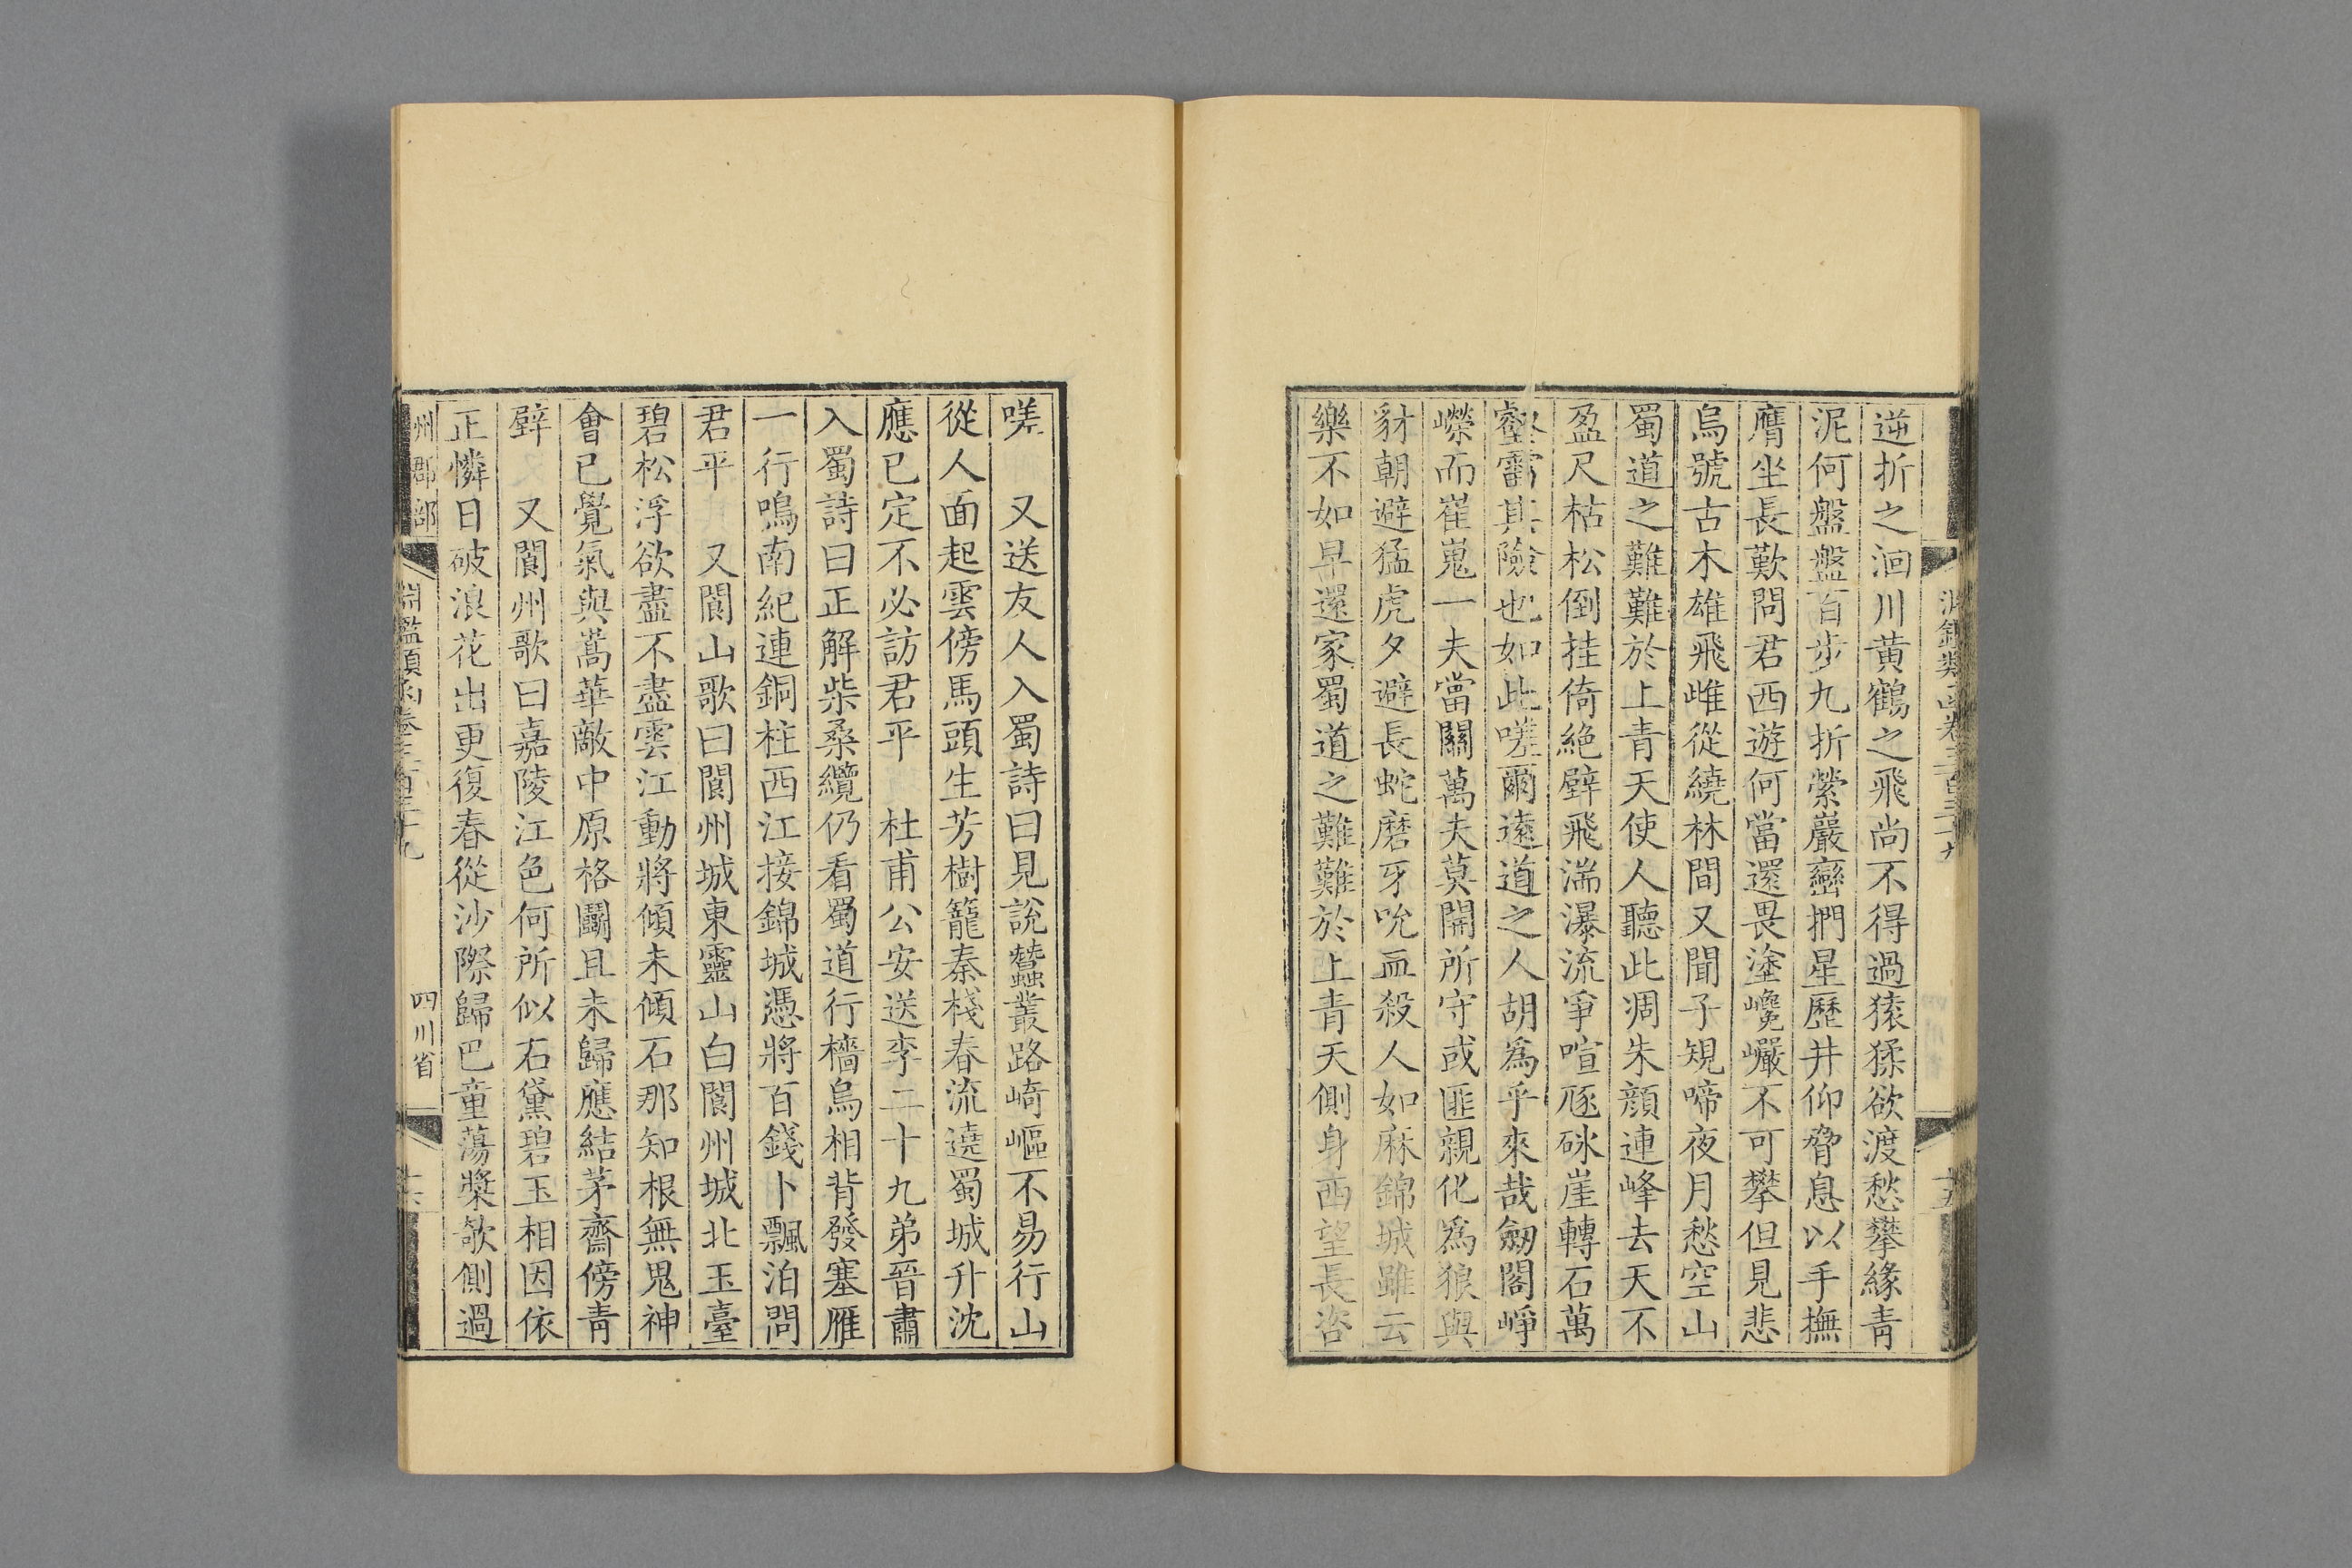 逆折之洄川黄鶴之飛尚不得過猿猱欲渡愁攀緣青
泥何盤盤百步九折縈巖巒捫星歷井仰脅息以手撫
膺坐長歎問君西遊何當還畏塗巉巗不可攀但見悲
烏號古木雄飛雌從繞林間又聞子規啼夜月愁空山
蜀道之難難於上青天使人聽此凋朱顔連峰去天不
盈尺枯松倒挂倚絶壁飛湍瀑流爭喧豗砯崖轉石萬
壑雷其險也如此嗟爾遠道之人胡爲乎來哉劒閣崢
嶸而崔嵬一夫當關萬夫莫開所守或匪親化爲狼與
豺朝避猛虎夕避長蛇磨牙吮血殺人如麻錦城雖云
樂不如早還家蜀道之難難於上青天側身西望長咨
嗟　又送友人入蜀詩曰見說蠶叢路崎嶇不易行山
從人面起雲傍馬頭生芳樹籠秦棧春流遶蜀城升沈
應已定不必訪君平　杜甫公安送李二十九弟晉肅
入蜀詩曰正解柴桑纜仍看蜀道行檣烏相背發塞雁
一行鳴南紀連銅柱西江接錦城憑將百錢卜飄泊問
君平　又閬山歌曰閬州城東靈山白閬州城北玉臺
碧松浮欲盡不盡雲江動將傾未傾石那知根無鬼神
會已覺氣與嵩華敵中原格鬭且未歸應結茅齋傍青
壁　又閬州歌曰嘉陵江色何所似石黛碧玉相因依
正憐日破浪花出更復春從沙際歸巴童蕩槳欹側過
州郡部
淵鑑類函卷三百三十九
四川省
十六